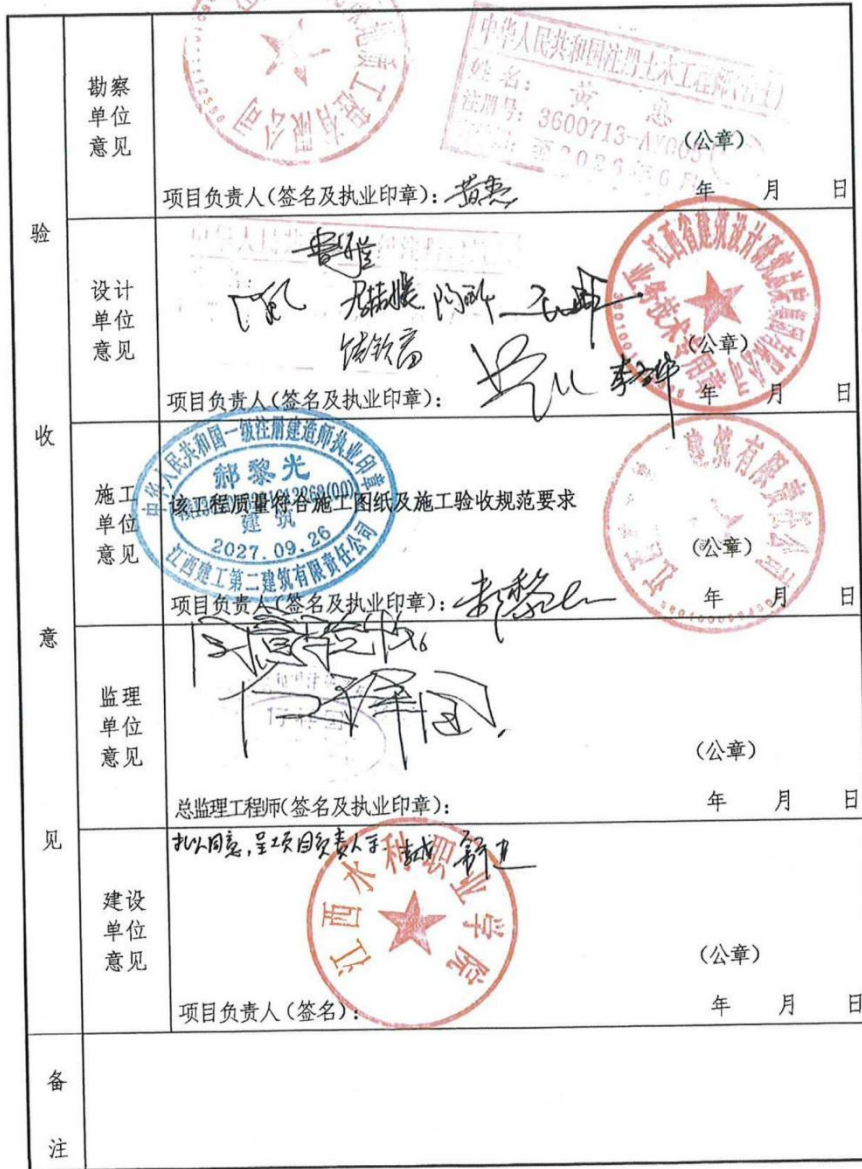 验收意见
勘察单位意见
地质工程有限公司
中华人民共和国注册土木工程师(岩土)
姓名: 黄惠
注册号: 3600713-AY005
(公章)
项目负责人(签名及执业印章): 黄惠
年 月 日
设计单位意见
江西省建筑设计研究总院集团有限公司
业务技术专用章
(公章)
项目负责人(签名及执业印章):
年 月 日
施工单位意见
中华人民共和国一级注册建造师执业印章
郝黎光
(00)
建筑
2027.09.26
江西建工第二建筑有限责任公司
该工程质量符合施工图纸及施工验收规范要求
建筑有限责任公司
(公章)
项目负责人(签名及执业印章): 郝黎光
年 月 日
监理单位意见
(公章)
总监理工程师(签名及执业印章):
年 月 日
建设单位意见
拟同意,呈项目负责人
江西水利职业学院
(公章)
项目负责人(签名):
年 月 日
备注